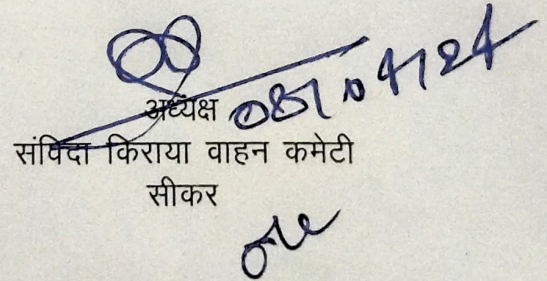 अध्यक्ष 08/04/24
संविदा किराया वाहन कमेटी
सीकर